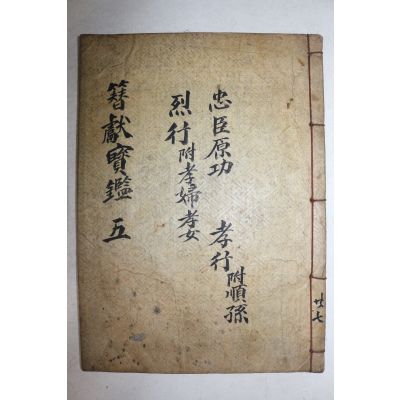 忠臣原功 孝行附順孫
烈行附孝婦孝女
簪獻寶鑑 五
廿七